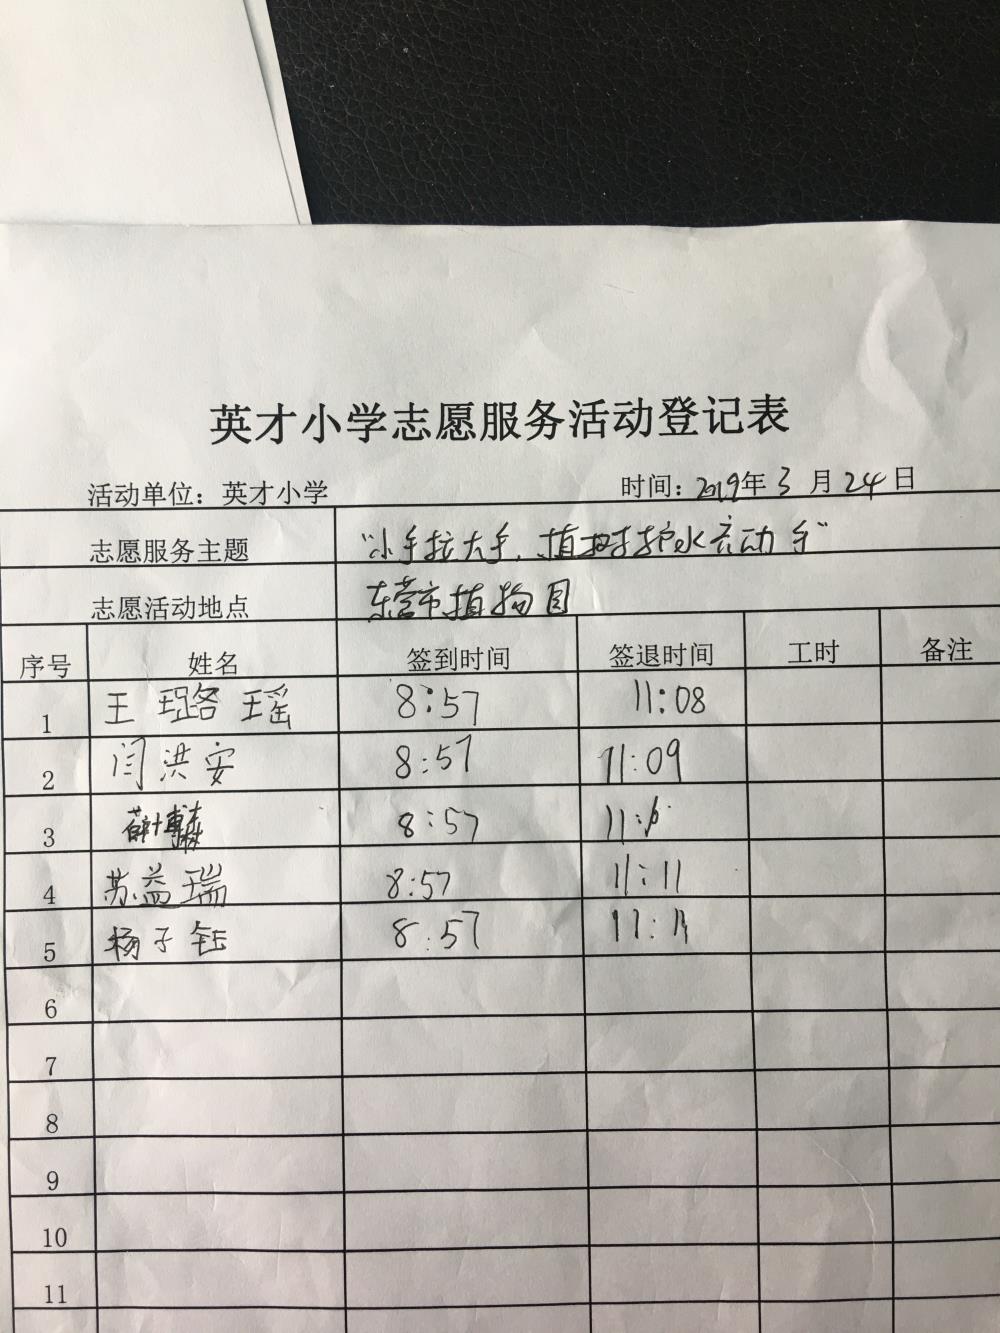 英才小学志愿服务活动登记表
活动单位：英才小学 时间：2019年3月24日
志愿服务主题 “小手拉大手，植树护水齐动手”
志愿活动地点 东营市植物园
序号 姓名 签到时间 签退时间 工时 备注
1 王 瑶 8:57 11:08
2 闫洪安 8:57 11:09
3 薛 8:57 11:
4 苏益瑞 8:57 11:11
5 杨子钰 8:57 11:11
6
7
8
9
10
11